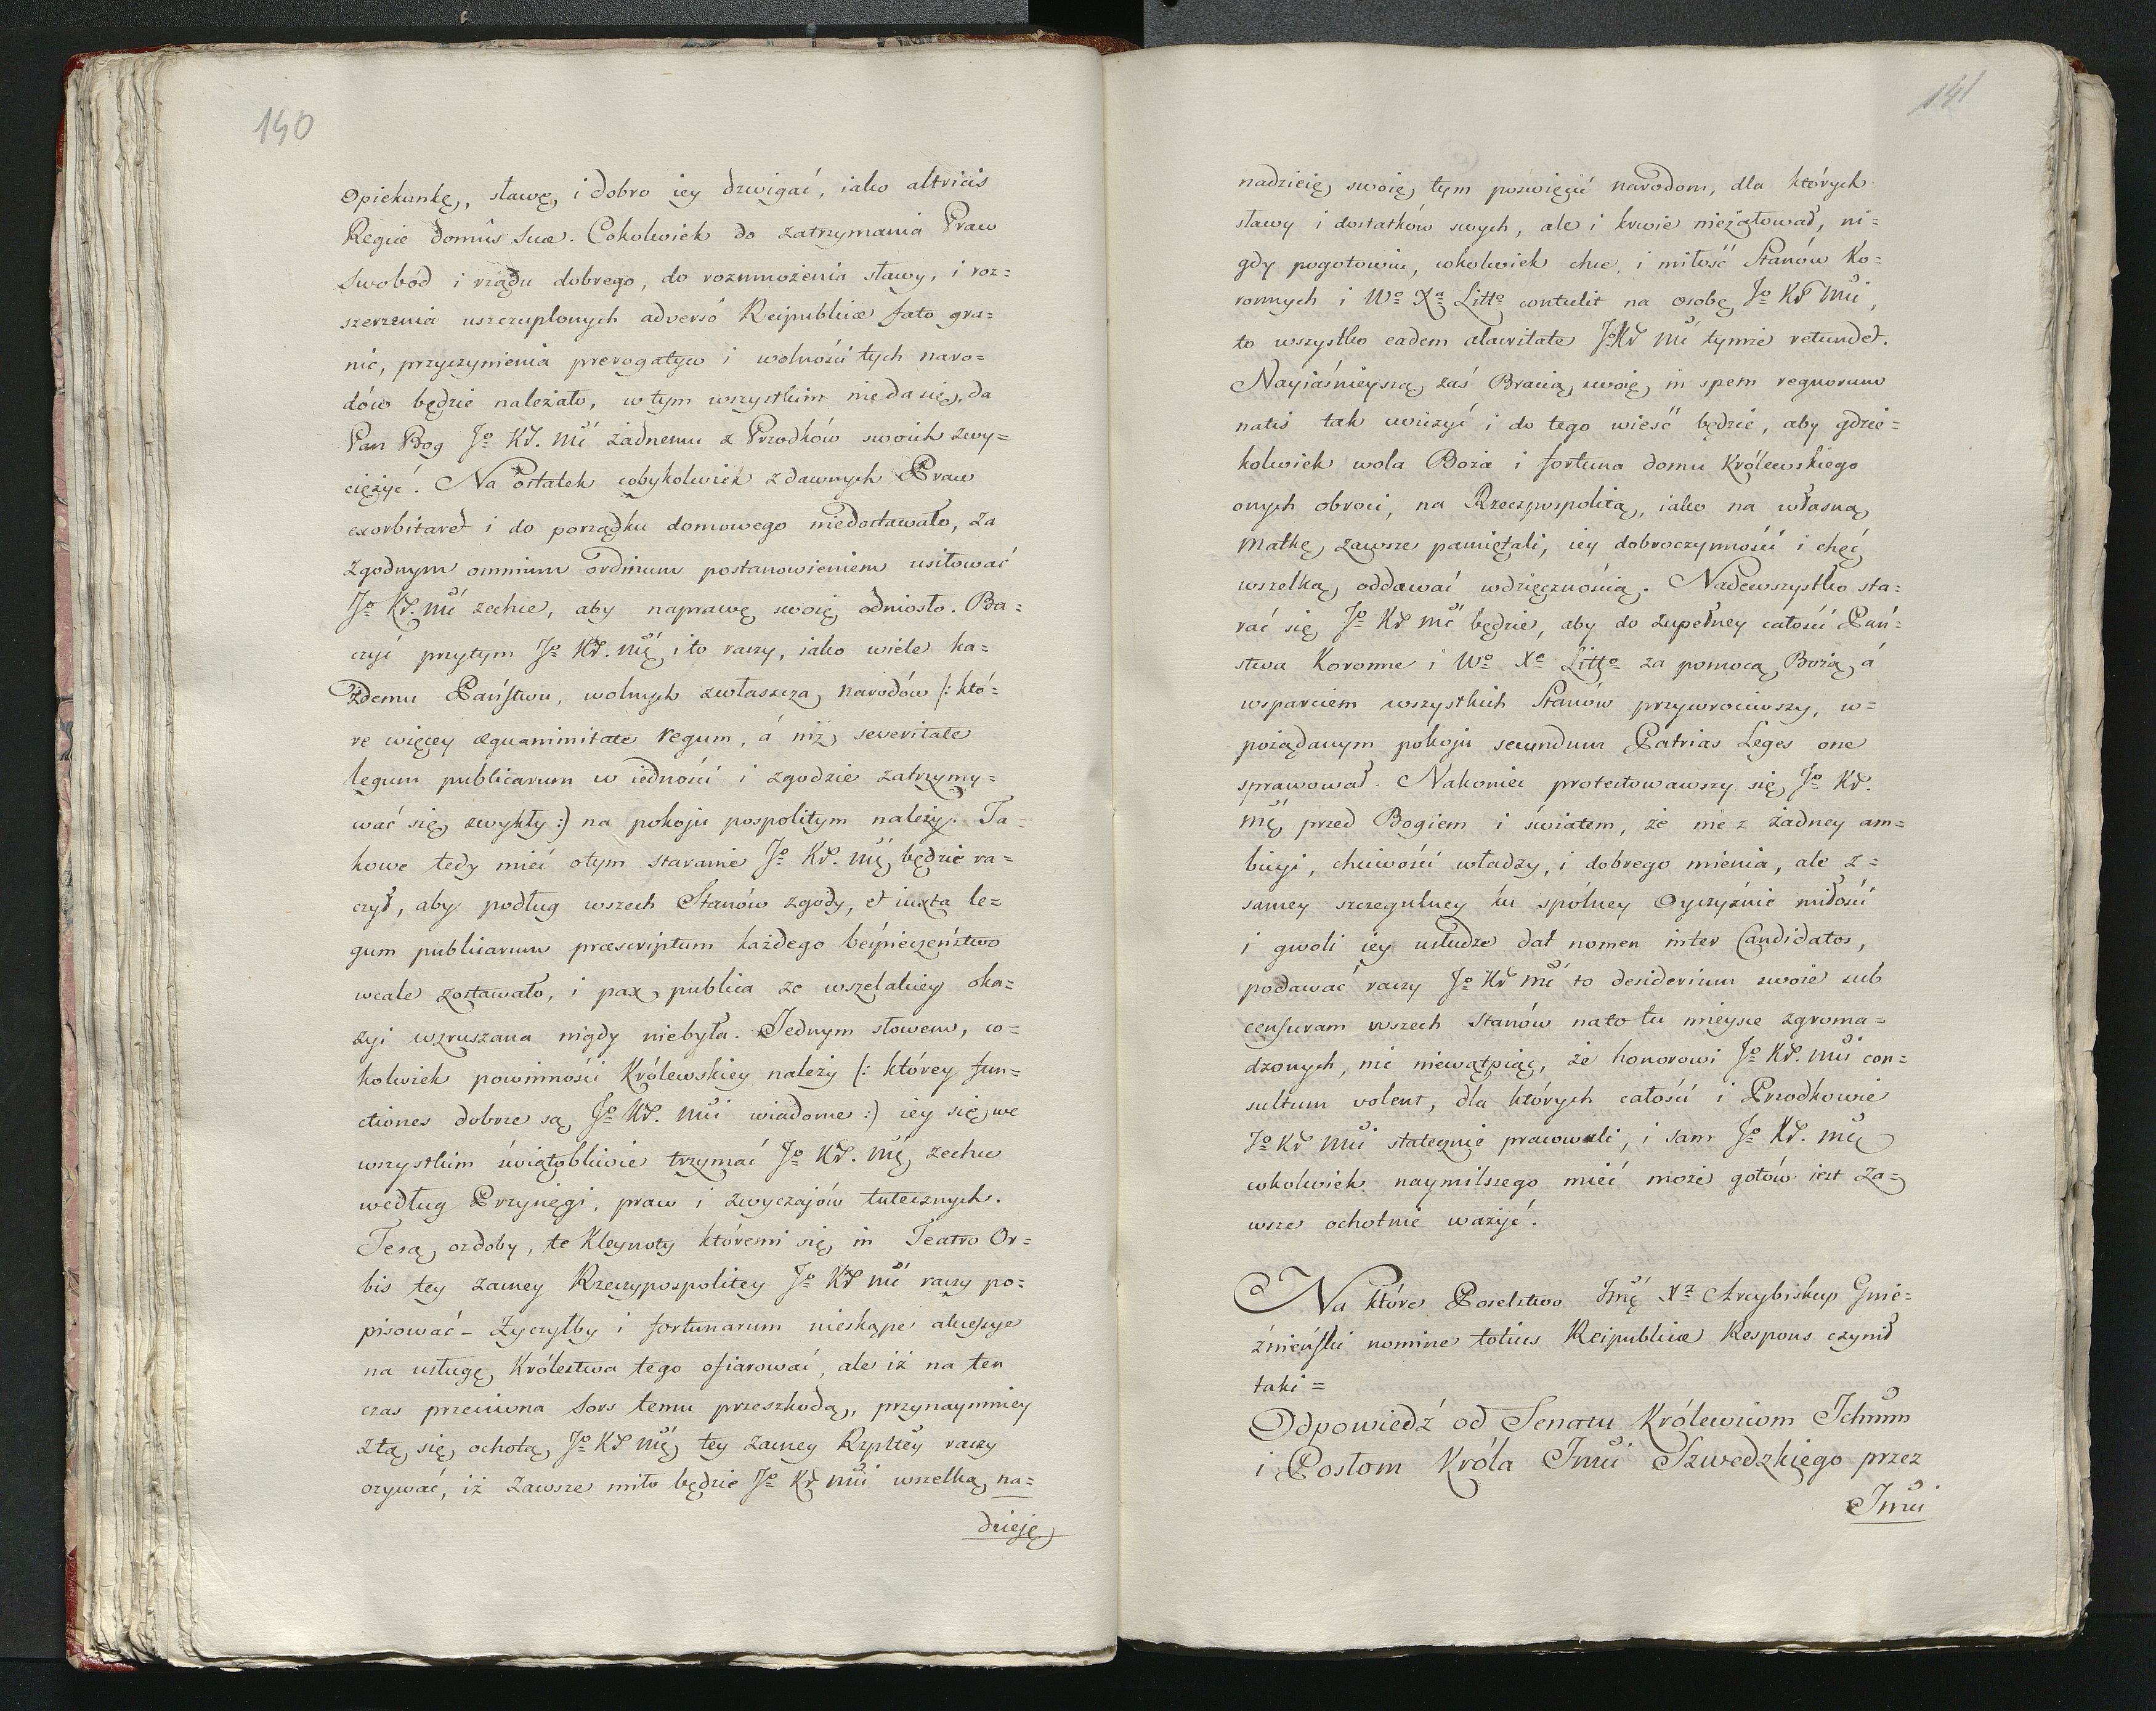 140
Opiekunkę, sławę, i dobro iey dzwigać, iako altricis
Regiæ domûs suæ. Cokolwiek do zatrzymania Praw
Swobód i rządu dobrego, do rozmnożenia sławy, i roz=
szerzenia uszczuplonych adversô Reipublicæ fato gra=
nic, przyczynienia prerogatyw i wolności tych naro=
dów będzie należało, w tym wszystkim nieda się, da
Pan Bog Jo KJ. Mć żadnemu z Przodków swoich zwy=
ciężyć. Na ostatek cobykolwiek z dawnych Praw
exorbitaret i do porządku domowego niedostawało, za
zgodnym omnium ordinum postanowieniem usiłować
Jo KJ. Mć zechce, aby naprawę swoię odniosło. Ba=
czyć przytym Jo KJ. Mć i to raczy, iako wiele ka=
żdemu Państwu, wolnych zwłaszcza narodów /: któ=
re więcey æquanimitate regum, á niż severitate
legum publicarum w iedności i zgodzie zatrzymy=
wać się zwykły :/ na pokoju pospolitym należy. Ta=
kowe tedy mieć otym staranie Jo KJ. Mć będzie ra=
czył, aby podług wszech Stanów zgody, et iuxta le=
gum publicarum præscriptum każdego beśpieczeństwo
wcale zostawało, i pax publica ze wszelakiey oka=
zyi wzruszana nigdy niebyła. Jednym słowem, co=
kolwiek powinności Królewskiey należy /: którey fun=
ctiones dobrze są Jo KJ. Mći wiadome :/ iey się we
wszystkim świątobliwie trzymać Jo KJ. Mć zechce
według Przysięgi, praw i zwyczajów tutecznych.
Te są ozdoby, te Kleynoty któremi się in Teatro Or=
bis tey zacney Rzeczypospolitey Jo KJ Mć raczy po=
pisować – życzyłby i fortunarum nieskąpe
na usługę Królestwa tego ofiarować, ale iż na ten
czas przeciwna Sors temu przeszkodą, przynaymniey
z tą się ochotą Jo KJ Mć tey zacney Rzpltey raczy
ozywać, iż zawsze miło będzie Jo KJ Mći wszelką na=
dzieję
141
nadzieię swoię tym poświęcić narodom, dla których
sławy i dostatków swych, ale i krwie nieżałował, ni=
gdy pogotowiu, cokolwiek chęć, i miłość Stanów Ko=
ronnych i Wo Xa Litto contulit na osobę Jo KJ Mći,
to wszystko eadem alacritate Jo KJ Mć tymże retundet.
Nayiaśnieyszą zaś Bracią swoię in spem regnorum
natis tak ćwiczyć i do tego wieść będzie, aby gdzie=
kolwiek wola Boża i fortuna domu Królewskiego
onych obroci, na Rzeczpospolitą, iako na własną
Matkę zawsze pamiętali, iey dobroczynności i chęć
wszelką oddawać wdzięcznością. Nadewszystko sta=
rać się Jo KJ Mć będzie, aby do zupełney całości Pań=
stwa Koronne i Wo Xa Litto za pomocą Bożą, á
wsparciem wszystkich Stanów przywrociwszy, w=
pożądanym pokoju secundum Patrias Leges one
sprawował. Nakoniec protestowawszy się Jo KJ.
Mć przed Bogiem i światem, że nie z żadney am=
bicyi, chciwości władzy, i dobrego mienia, ale z=
samey szczegulney ku spólney Oyczyźnie miłości
i gwoli iey usłudze dał nomen inter Candidatos,
podawać raczy Jo KJ Mć to desiderium swoie sub
censuram wszech Stanów na to tu mieysce zgroma=
dzonych, nic niewątpiąc, że honorowi Jo KJ. Mći con=
sultum volent, dla których całości i Przodkowie
Jo KJ Mći statecznie pracowali, i sam Jo KJ. Mć
cokolwiek naymilszego mieć może gotów iest za=
wsze ochotnie ważyć.
Na które Poselstwo Jmć Xz Arcybiskup Gnie=
źnieński nomine totius Reipublicæ Respons czynił
taki =
Odpowiedź od Senatu Królewicom Ichmm
i Posłom Króla Jmći Szwedzkiego przez
Jmći